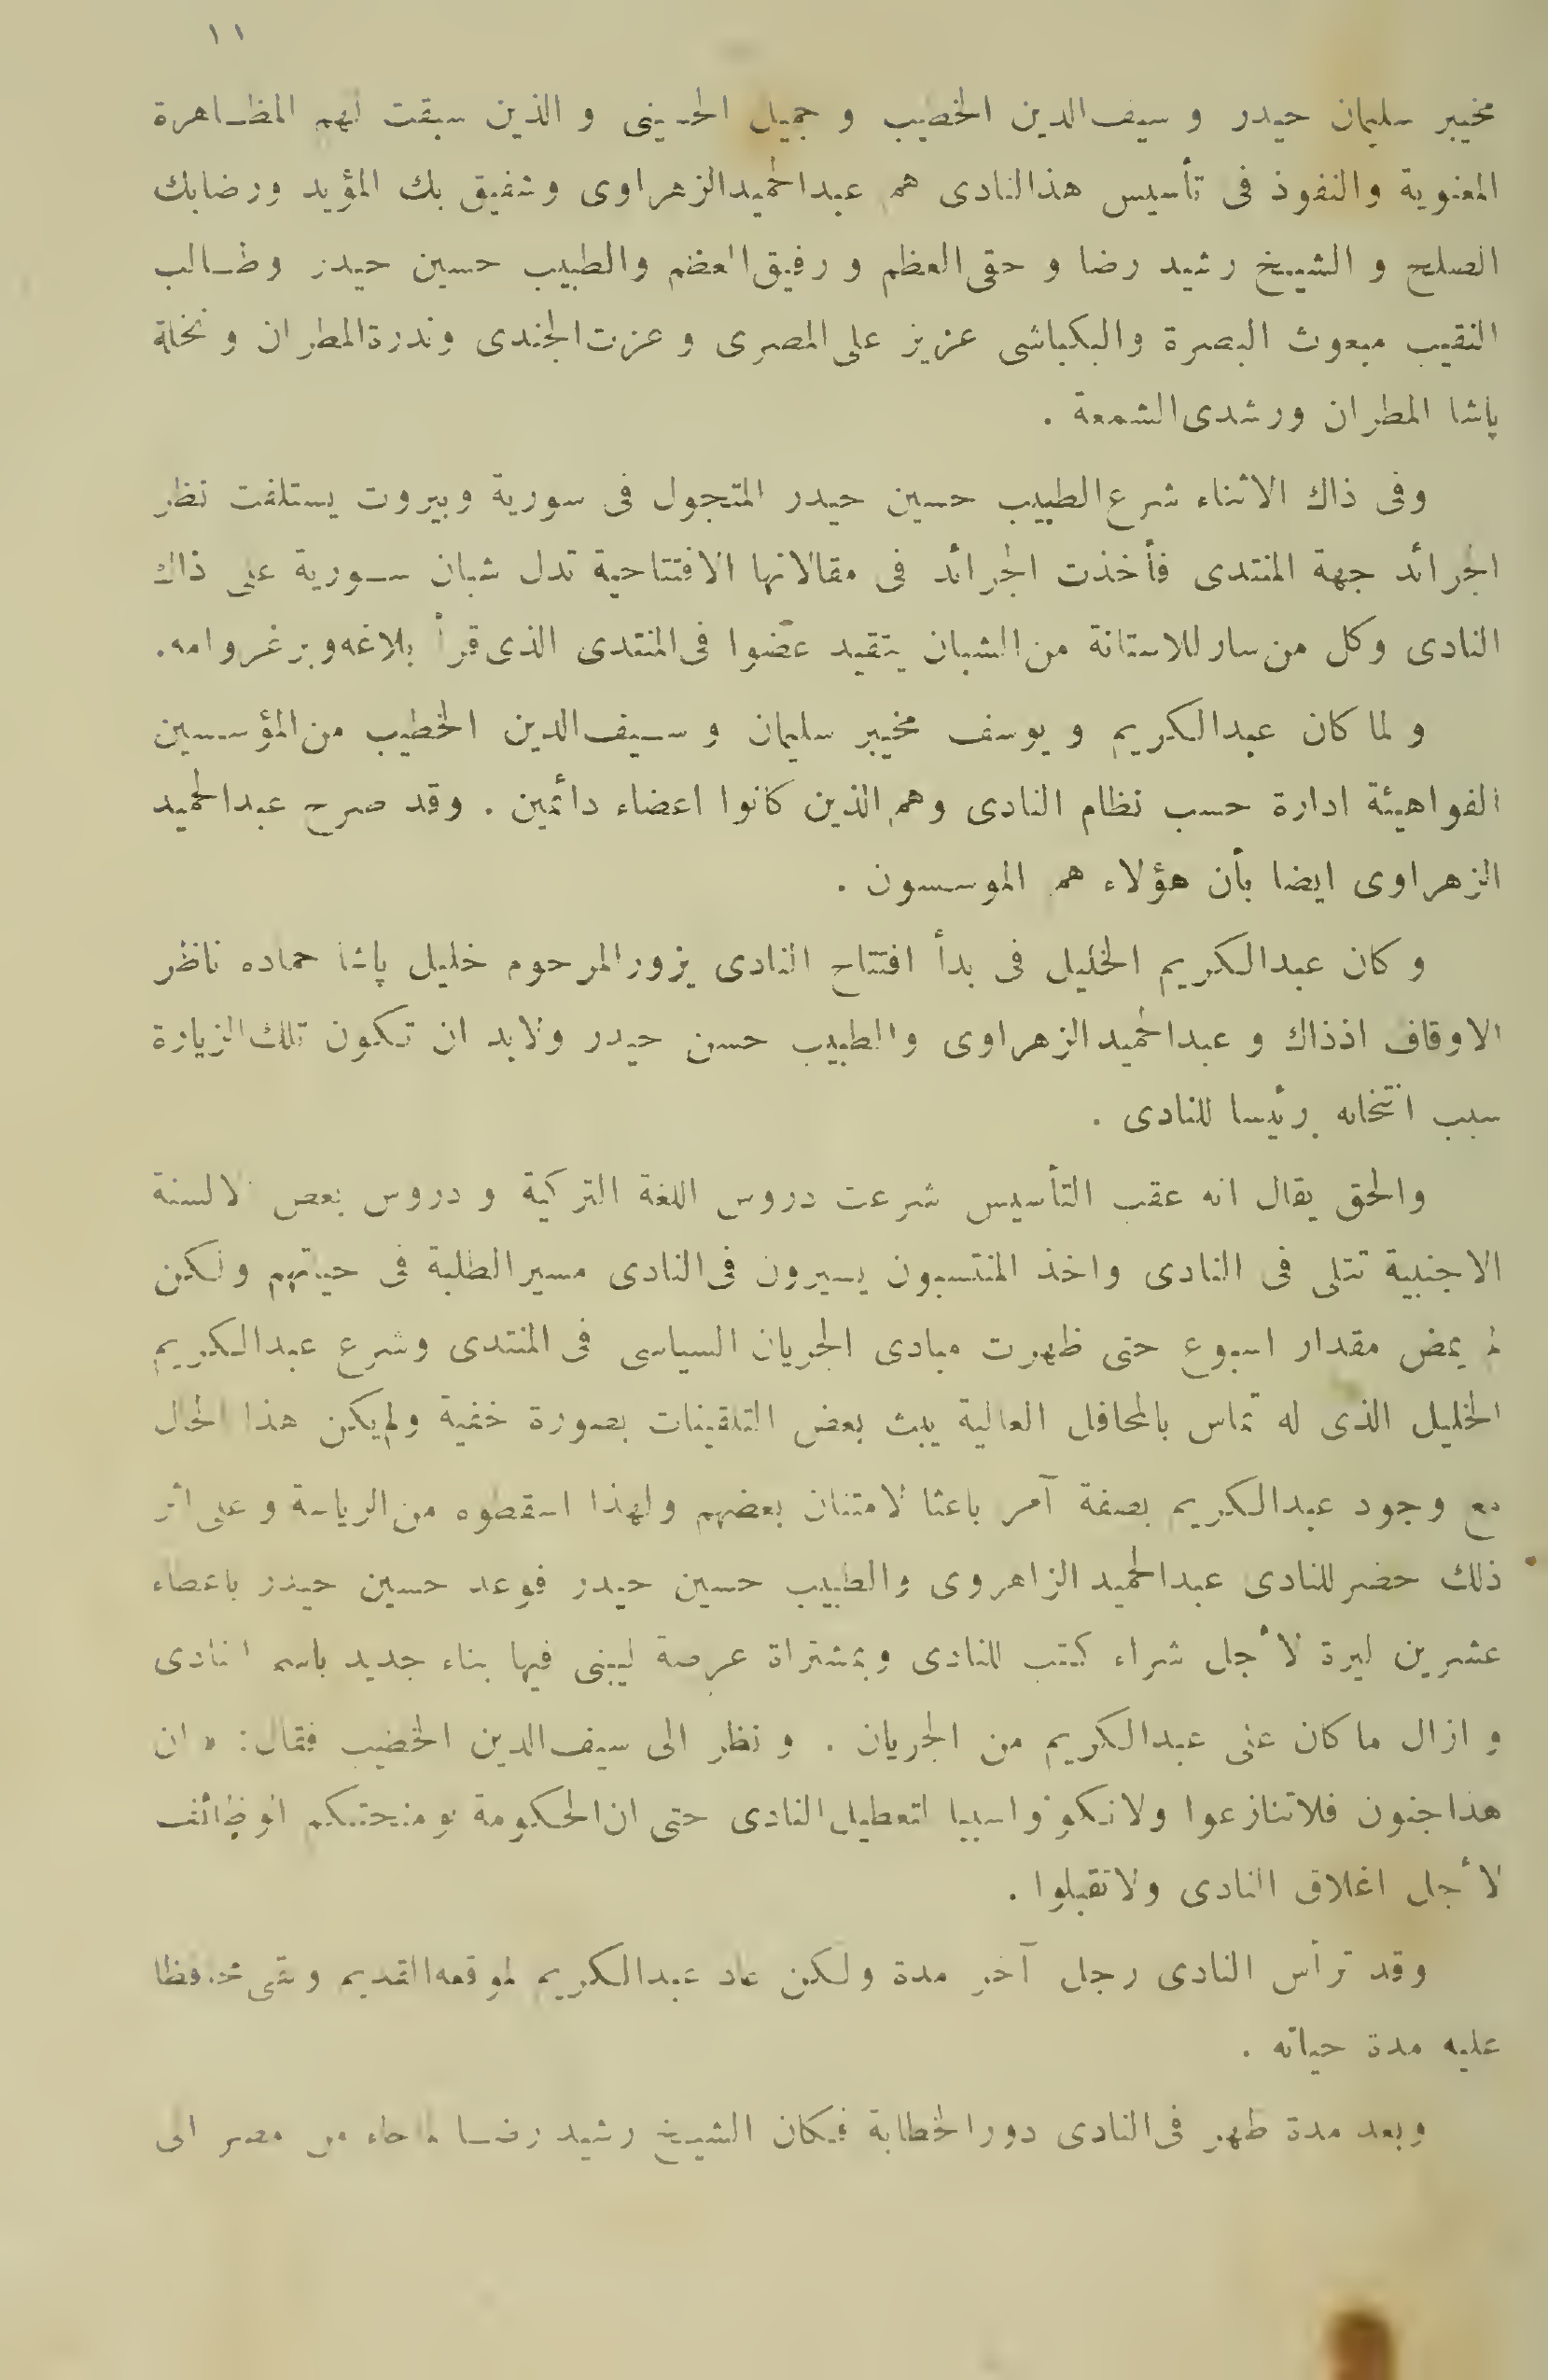 ١١
مخيبر سليمان حيدر و سيف الدين الخطيب و جميل الحسينى و الذين سبقت لهم المظاهرة
المعنوية والنفوذ فى تأسيس هذالنادى هم عبدالحميدالزهراوى وشفيق بك المؤيد ورضابك
الصلح و الشيخ رشيد رضا و حقى العظم و رفيق العظم والطبيب حسين حيدر وطالب
النقيب مبعوث البصرة والبكباشى عزيز على المصرى و عزت الجندى وندرة المطران و نخلة
پاشا المطران ورشدى الشمعة .
وفى ذاك الاثناء شرع الطبيب حسين حيدر المتجول فى سورية وبيروت يستلفت نظر
الجرائد جهة المنتدى فأخذت الجرائد فى مقالاتها الافتتاحية تدل شبان سورية على ذاك
النادى وكل من سار للاستانة من الشبان يتقيد عضوا فى المنتدى الذى قرأ بلاغه وبرغروامه .
و لما كان عبدالكريم و يوسف مخيبر سليمان و سيف الدين الخطيب من المؤسسين
الفوا هيئة ادارة حسب نظام النادى وهم الذين كانوا اعضاء دائمين . وقد صرح عبدالحميد
الزهراوى ايضا بأن هؤلاء هم الموسسون .
و كان عبدالكريم الخليل فى بدأ افتتاح النادى يزور المرحوم خليل پاشا حماده ناظر
الاوقاف اذذاك و عبدالحميد الزهراوى والطبيب حسن حيدر ولابد ان تكون تلك الزيارة
سبب انتخابه رئيسا للنادى .
والحق يقال انه عقب التأسيس شرعت دروس اللغة التركية و دروس بعض الالسنة
الاجنبية تتلى فى النادى واخذ المنتسبون يسيرون فى النادى مسير الطلبة فى حياتهم ولكن
لم يمض مقدار اسبوع حتى ظهرت مبادى الجريان السياسى فى المنتدى وشرع عبدالكريم
الخليل الذى له تماس بالمحافل العالية يبث بعض التلقينات بصورة خفية ولم يكن هذا الحال
مع وجود عبدالكريم بصفة آمر باعثا لامتنان بعضهم ولهذا اسقطوه من الرياسة و على أثر
ذلك حضر للنادى عبدالحميد الزاهروى والطبيب حسين حيدر فوعد حسين حيدر باعطاء
عشرين ليرة لأجل شراء كتب للنادى وبمشتراة عرصة ليبنى فيها بناء جديد باسم النادى
و ازال ما كان عنى عبدالكريم من الجريان . و نظر الى سيف الدين الخطيب فقال : « ان
هذا جنون فلاتنازعوا ولاتكونوا سببا لتعطيل النادى حتى ان الحكومة لو منحتكم الوظائف
لأجل اغلاق النادى ولاتقبلوا .
وقد ترأس النادى رجل آخر مدة ولكن عاد عبدالكريم لموقعه القديم وبقى محافظا
عليه مدة حياته .
وبعد مدة ظهر فى النادى دور الخطابة فكان الشيخ رشيد رضا لما جاء من مصر الى